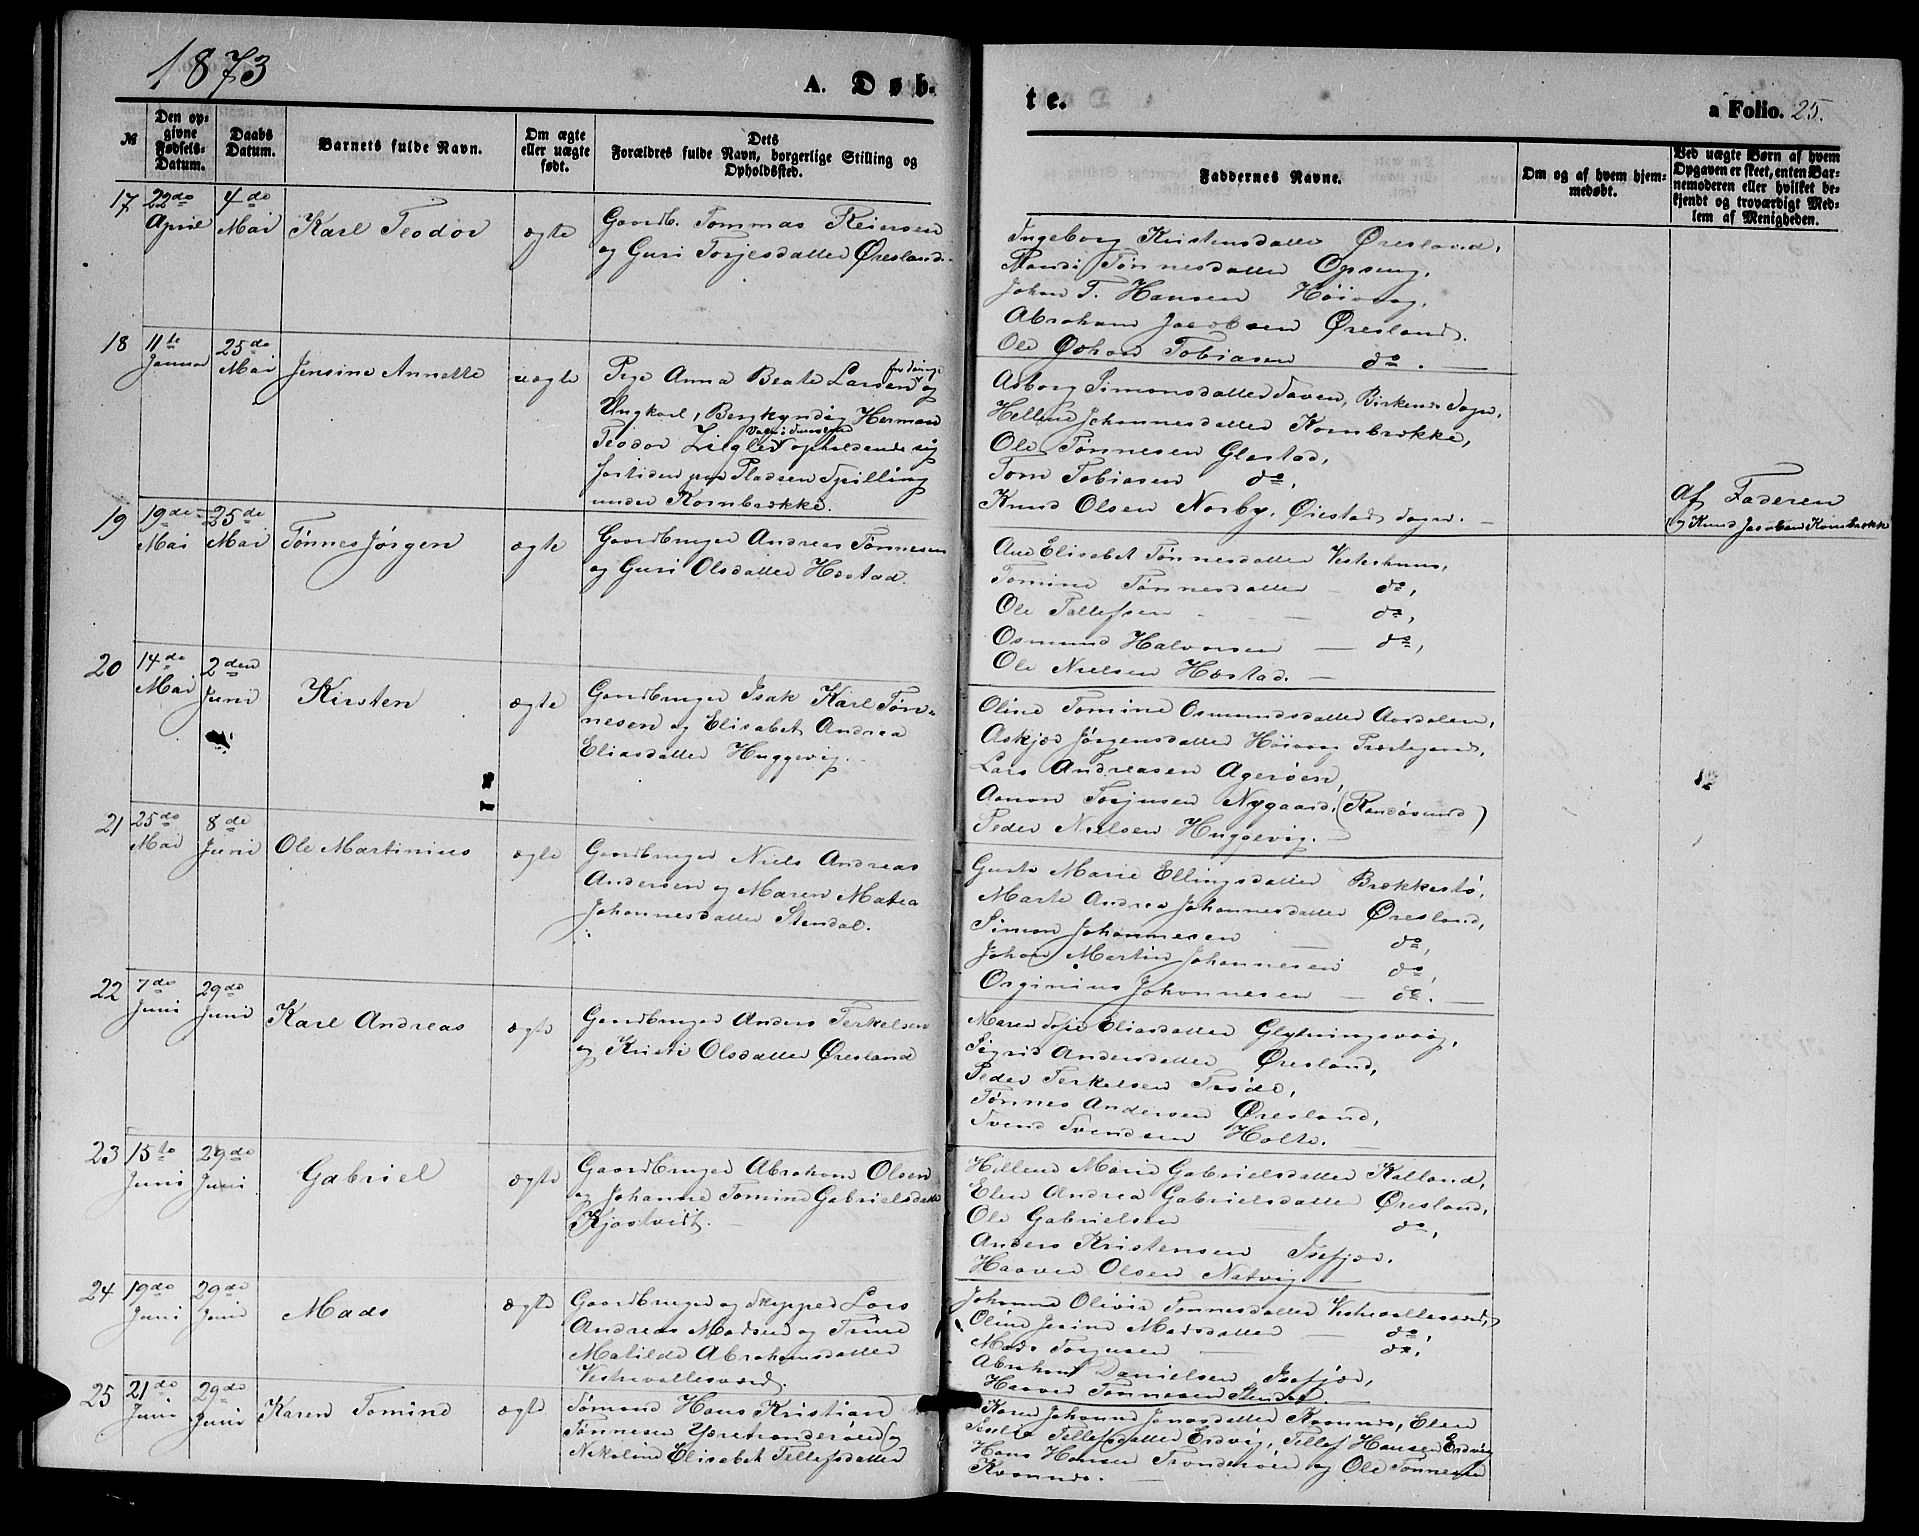 1873
A. Døb-
te.
a Folio. 25.
№
Den op-
givne
Fødsels-
Datum.
Daabs
Datum.
Barnets fulde Navn.
Om ægte
eller uægte
født.
Dets
Forældres fulde Navn, borgerlige Stilling og
Opholdssted.
Faddernes Navne.
Om og af hvem hjem-
medøbt.
Ved uægte Børn af hvem
Opgaven er skeet, enten Bar-
nemoderen eller hvilket be-
kjendt og troværdigt Med-
lem af Menigheden.
17 22de April 4de Mai Karl Teodor ægte
Gaardb. Tommas Reiersen
og Guri Torjesdatter Øresland.
Ingeborg Kristensdatter Øresland,
Tønnesdatter
Johan T. Hansen Høivaag,
Abraham Jacobsen Øresland.
Ole Johan Tobiasen do.
18 11te Januar 25de Mai Jensine Annette uægte
Pige Anna Beate Larsen og
Ungkarl, Bergkyndig Herman
Teodor opholdende sig
fortiden paa Pladsen Spilling
under Kornbrække.
Asborg Simonsdatter Birkenæs Sogn,
Helline Johannesdatter Kornbrække,
Ole Tønnesen Glastad,
Tom Tobiasen do,
Knud Olsen Norby, Øiestad Sogn.
Af Faderen
og Knud Jacobsen Kornbrække
19 19de Mai 25de Mai Tønnes Jørgen ægte
Gaardbruger Andreas Tønnesen
og Guri Olsdatter Hæstad.
Ane Elisabet Tønnesdatter Vesterhuus,
Tomine Tønnesdatter do,
Ole Tellefsen do,
Osmund Halvorsen do,
Ole Nielsen Hæstad.
20 14de Mai 2den Juni Kirsten ægte
Gaardbruger Isak Karl Tøn-
nesen og Elisabet Andrea
Eliasdatter Huggevig.
Oline Tomine Osmundsdatter Aasdalen,
Askjær Jørgensdatter Høivaag
Lars Andreasen Agerøen,
Aanon Torjusen Nygaard, (Randøsund)
Peder Nielsen Huggevig.
21 25de Mai 8de Juni Ole Martinius ægte
Gaardbruger Niels Andreas
Andersen og Maren Matea
Johannesdatter Stendal.
Marie Ellingsdatter Brækkestø,
Marte Andrea Johannesdatter Øresland,
Simon Johannesen do,
Johan Martin Johannesen do,
Orginius Johannesen do.
22 7de Juni 29de Juni Karl Andreas ægte
Gaardbruger Anders Terkelsen
og Kristi Olsdatter Øresland
Maren Eliasdatter
Sigrid Andersdatter Øresland,
Peder Terkelsen Trøde,
Tønnes Andersen Øresland,
Svend Svendsen Holte.
23 15te Juni 29de Juni Gabriel ægte
Gaardbruger Abraham Olsen
og Johanne Tomine Gabrielsdatter
Kjøstvedt.
Helline Marie Gabrielsdatter Kalland,
Elen Andrea Gabrielsdatter Øresland,
Ole Gabrielsen do,
Anders Kristensen Isefjær.
Haaver Olsen Natvig
24 19de Juni 29de Juni Mads ægte
Gaardbruger og Skipper Lars
Andreas Madsen og Trine
Matilde Abrahamsdatter
Vestrevallesværd.
Johanne Olivia Tønnesdatter Vestrevallesværd,
Oline Jesine Madsdatter do,
Mads Torjusen do,
Abraham Danielsen Isefjær,
Haaver Tønnesen Stendal.
25 21de Juni 29de Juni Karen Tomine ægte
Sømand Hans Kristian
Tønnesen Ytretronderøen og
Nikoline Elisabet Tellefsdatter
Karen Johanne Jonasdatter Kvannes, Elen
Tellefsdatter Eidvig, Tellef Hansen Eidvig
Hans Hansen Tronderøen og Ole Tønnesen
Kvannes.